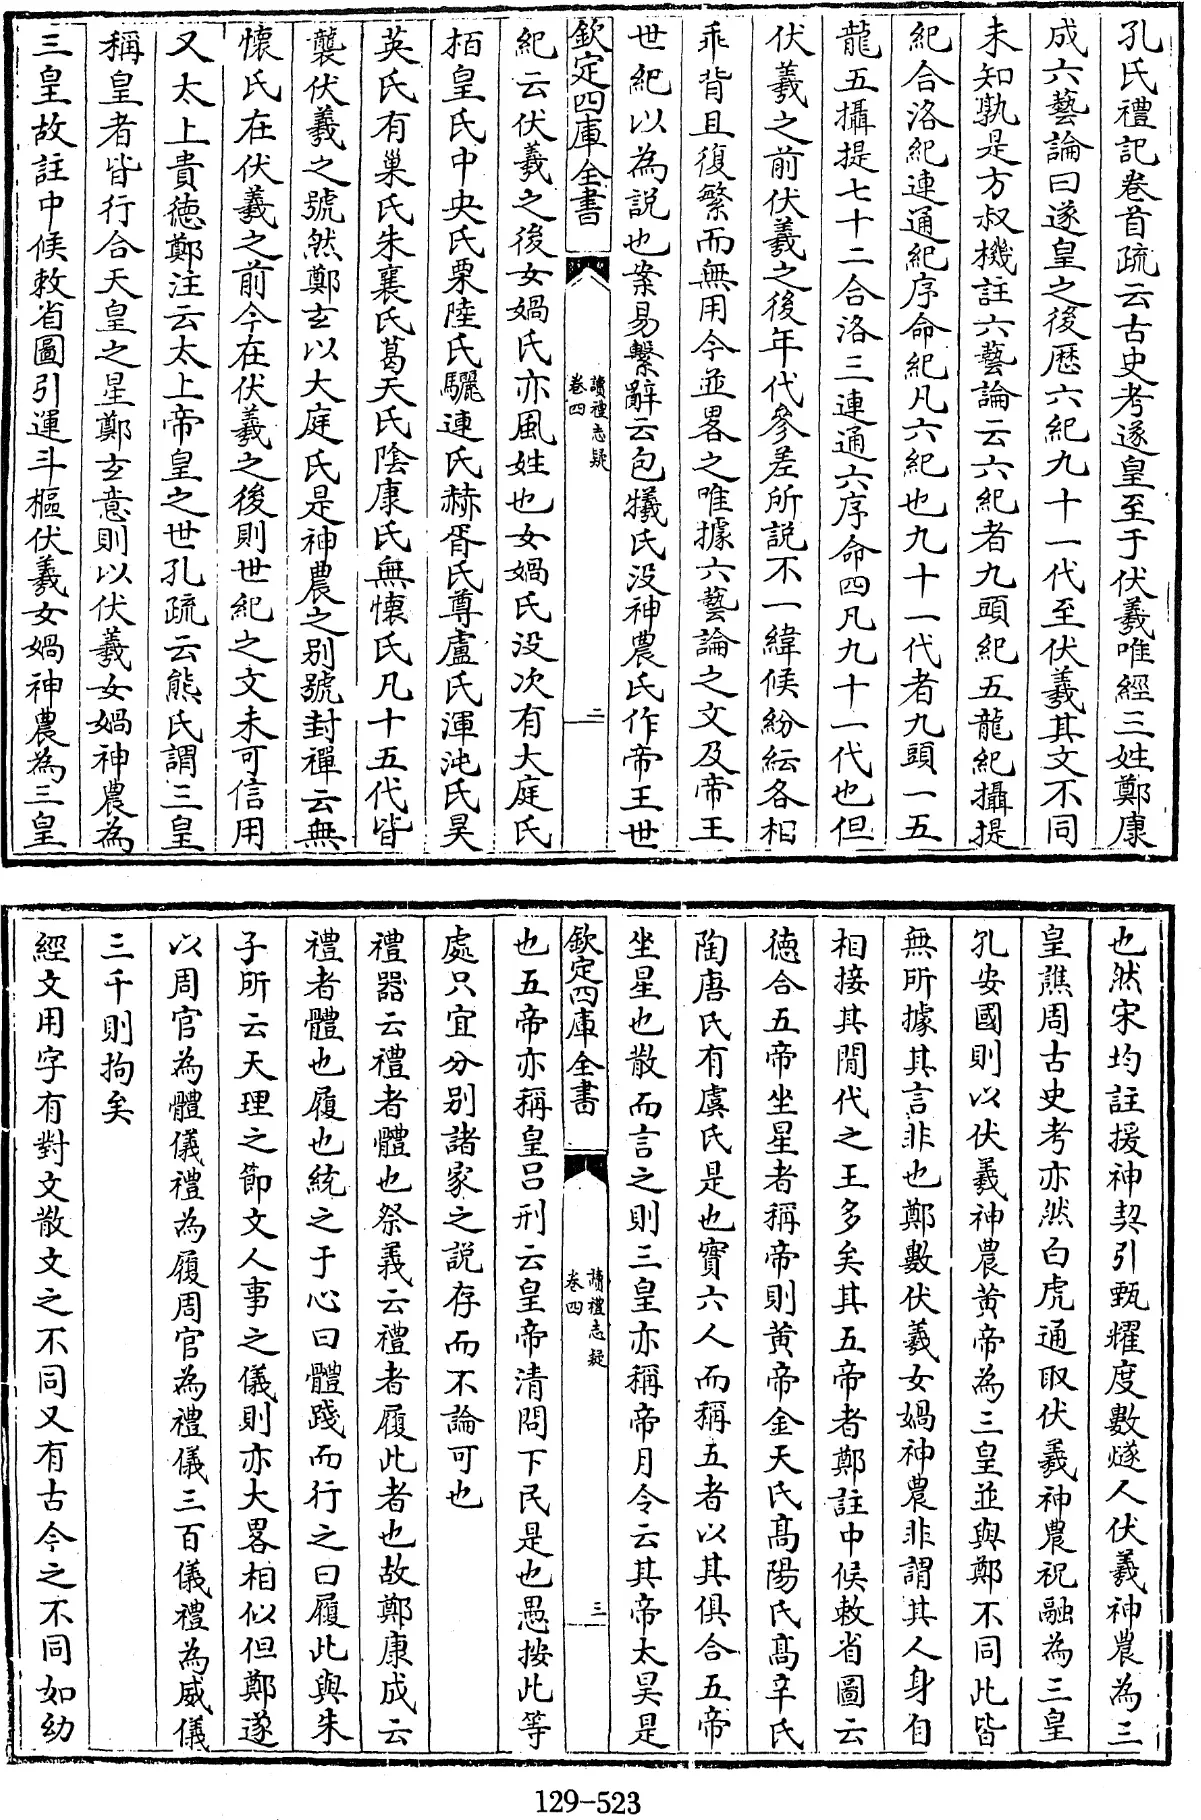 孔氏禮記卷首疏云古史考遂皇至于伏羲唯經三姓鄭康
成六藝論曰遂皇之後歴六紀九十一代至伏羲其文不同
未知孰是方叔機註六藝論云六紀者九頭紀五龍紀攝提
紀合洛紀連通紀序命紀凡六紀也九十一代者九頭一五
龍五攝提七十二合洛三連通六序命四凡九十一代也但
伏羲之前伏羲之後年代參差所説不一緯候紛紜各相
乖背且復繁而無用今並畧之唯據六藝論之文及帝王
世紀以為説也案易繫辭云包犧氏没神農氏作帝王世
欽定四庫全書
讀禮志疑
卷四
二
紀云伏羲之後女媧氏亦風姓也女媧氏没次有大庭氏
栢皇氏中央氏栗陸氏驪連氏赫胥氏尊盧氏渾沌氏昊
英氏有巢氏朱襄氏葛天氏陰康氏無懐氏凡十五代皆
襲伏羲之號然鄭玄以大庭氏是神農之别號封禪云無
懐氏在伏羲之前今在伏羲之後則世紀之文未可信用
又太上貴徳鄭注云太上帝皇之世孔疏云熊氏謂三皇
稱皇者皆行合天皇之星鄭玄意則以伏羲女媧神農為
三皇故註中候敕省圖引運斗樞伏羲女媧神農為三皇
也然宋均註援神契引甄耀度數燧人伏羲神農為三
皇譙周古史考亦然白虎通取伏羲神農祝融為三皇
孔安國則以伏羲神農黄帝為三皇並與鄭不同此皆
無所據其言非也鄭數伏羲女媧神農非謂其人身自
相接其閒代之王多矣其五帝者鄭註中候敕省圖云
徳合五帝坐星者稱帝則黄帝金天氏髙陽氏髙辛氏
陶唐氏有虞氏是也實六人而稱五者以其俱合五帝
坐星也散而言之則三皇亦稱帝月令云其帝太昊是
欽定四庫全書
讀禮志疑
卷四
三
也五帝亦稱皇吕刑云皇帝清問下民是也愚按此等
處只宜分别諸家之説存而不論可也
禮器云禮者體也祭義云禮者履此者也故鄭康成云
禮者體也履也統之于心曰體踐而行之曰履此與朱
子所云天理之節文人事之儀則亦大畧相似但鄭遂
以周官為體儀禮為履周官為禮儀三百儀禮為威儀
三千則拘矣
經文用字有對文散文之不同又有古今之不同如幼
129-523